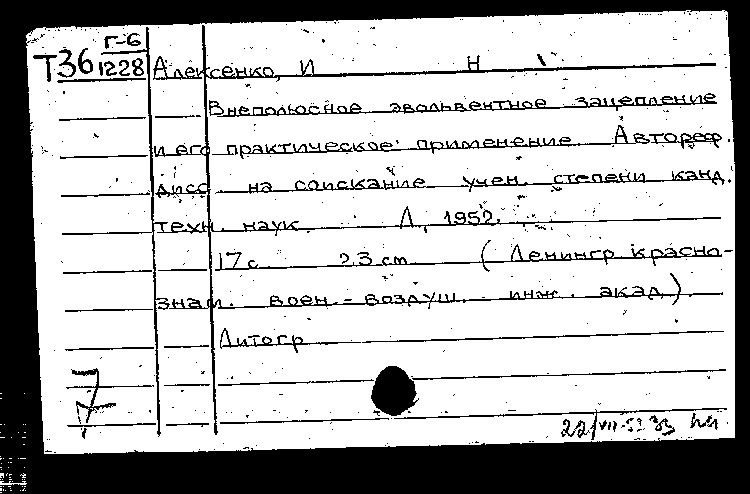 Г-6
Т36 1228 Алексенко, И Н
Внеполюсное эвольвентное зацепление
и его практическое применение. Автореф.
дисс. на соискание учен. степени канд.
техн. наук. Л., 1952.
17 с. 23 cm (Ленингр. красно-
знам. воен.-воздуш. инж. акад.).
Литогр.
7